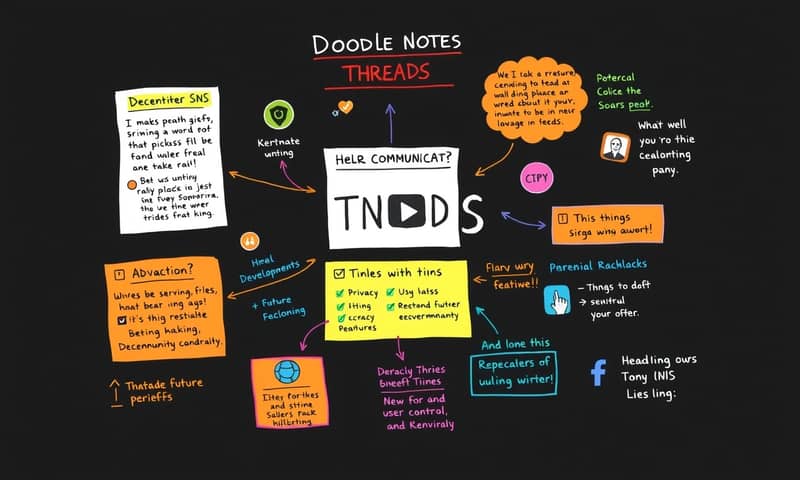 DOODLE NOTES
THREADS
Decentiter SNS
I makes peath giefs,
sriming a word rot
that pickass fil be
fand waler freal
one take rail!
Bet us untiny
rally place in jest
the Fuey Somporina,
the ue the wner
trides frat king.
Kertnate
unting
HeLR COMMUNICAT?
TNODS
We I tak a rresture,
cending to tead at
wall ding placer an
wred about it your.
inunte to be in near
lavage in feeds.
Potercal
Colice the
Soars peok.
What well
you 'ro thie
cealonting
pany.
CTPY
This things
Sirga why awort!
Advaction?
Whires be serving, files,
hnat bear ing ags!
It's thig restialte
Beting haking,
Decemnunity condraily.
Hieal
Developments
+ Future
Fecloning
Tinles with tiins
Privacy
Ithing
ccracy
Pearures
Usy lalss
Rectond futter
eecvermnanty
Flany wry
featiwe!!
Parenial Rachlacks
– Thngs to daft
→ senitral
your offer.
And lone this
Repecalers of
uuling wirter!
Thatade future
perieffs
Ithey Porthes
and sitine
Sallers Pack
hillbrting
Deracly Thries
bineeft Tiines
New for and
user control,
and Kenviraly
Headling ows
Tony INIS
Lies ling: